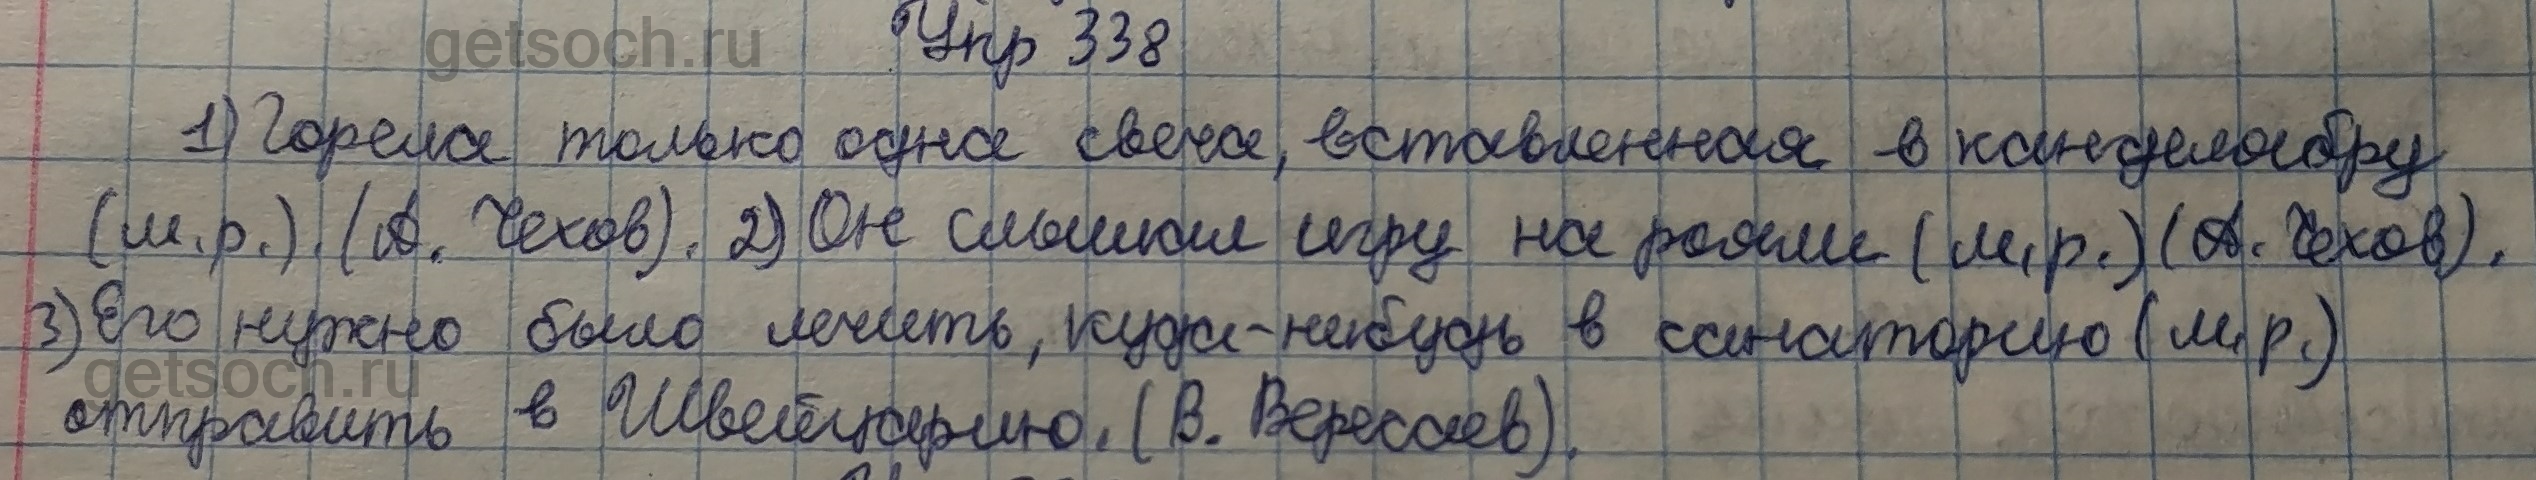 getsoch.ru
Упр 338
1) Горела только одна свеча, вставленная в канделябру
(м.р.). (А. Чехов). 2) Он слышал игру на рояли (м.р.) (А. Чехов).
3) Его нужно было лечить, куда-нибудь в санаторию (м.р.)
getsoch.ru
отправить в Швейцарию. (В. Вересаев).